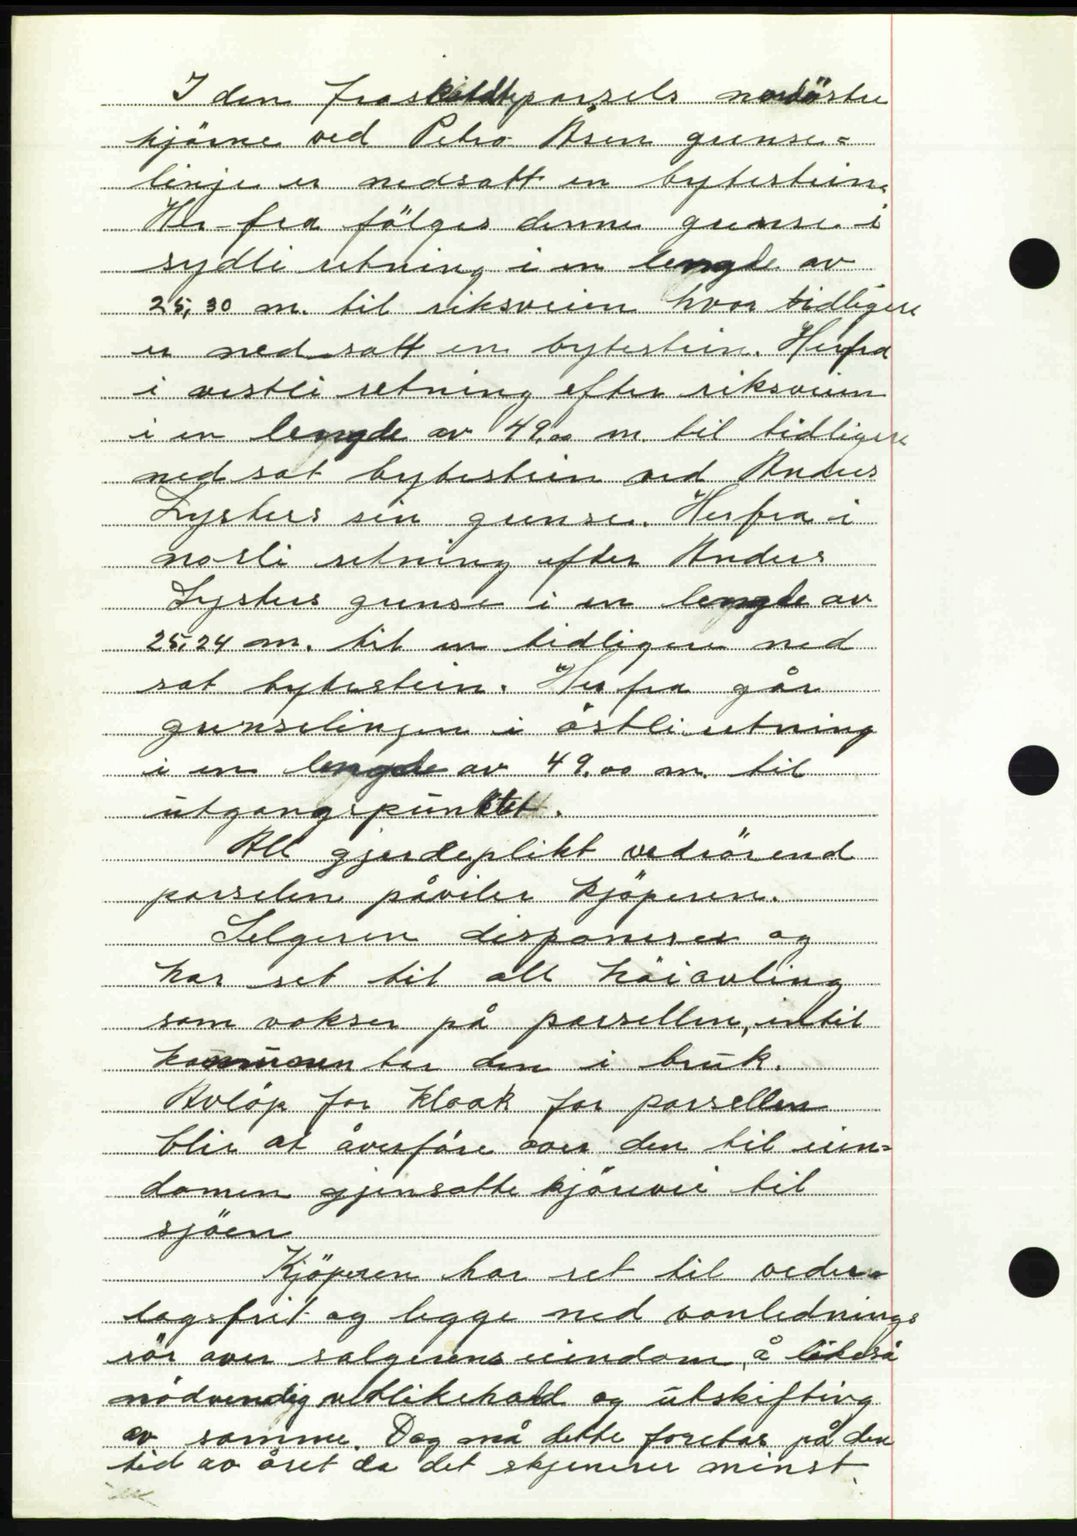 I den fraskildte parsels nordöstre
hjörne ved Petra Åsen grense-
linje er nedsatt en bytestein.
Her fra fölges denne grense i
sydli retning i en lengde av
25,30 m. til riksveien hvor tidligere
er ned satt en bytestein. Herfra
i vestli retning efter riksveien
i en lengde av 49,00 m. til tidligere
ned sat bytestein ved Anders
Lysters sin grense. Herfra i
norli retning efter Anders
Lysters grense i en lengde av
25,24 m. til en tidligere ned
sat bytestein. Her fra går
grenselinjen i östli retning
i en lengde av 49.00 m. til
utgangspunktet.
All gjerdeplikt vedrörend
parselen påviler kjöperen.
Selgeren disponerer og
har ret til all höiavling
som vokser på parsellen, intil
kommunen tar den i bruk.
Avlöp for kloak for parsellen
blir at överföre over den til eien-
domen gjensatte kjörevei til
sjöen
Kjöperen har ret til veder-
lagsfrit og legge ned vanlednings
rör over selgerens eiendom, å likeså
nödvendig vetlikehold og utskifting
av samme. Dog må dette foretas på den
tid av året da det skjenerer minst.